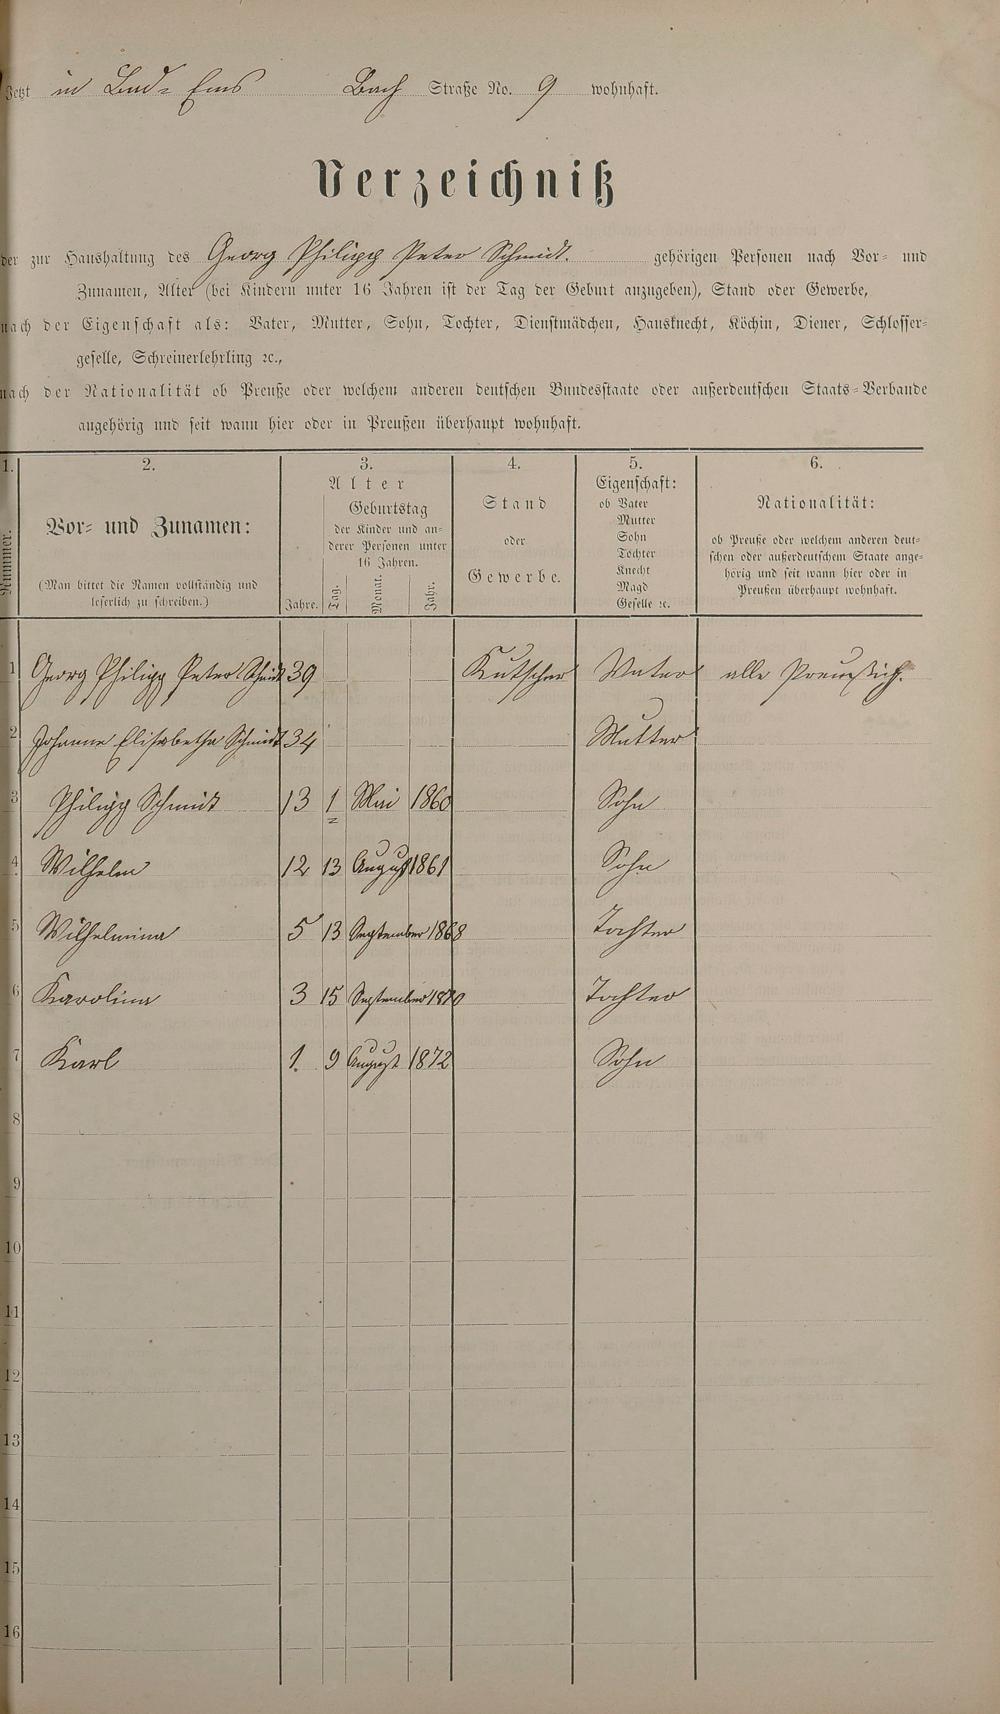 Jetzt in Bad-Ems Bach Straße No. 9 wohnhaft.
Verzeichniß
der zur Haushaltung des Georg Philipp Peter Schmidt. gehörigen Personen nach Vor- und
Zunamen, Alter (bei Kindern unter 16 Jahren ist der Tag der Geburt anzugeben), Stand oder Gewerbe,
nach der Eigenschaft als: Vater, Mutter, Sohn, Tochter, Dienstmädchen, Hausknecht, Köchin, Diener, Schlosser-
geselle, Schreinerlehrling ꝛc.,
nach der Nationalität ob Preuße oder welchem anderen deutschen Bundesstaate oder außerdeutschen Staats-Verbande
angehörig und seit wann hier oder in Preußen überhaupt wohnhaft.
1. 2. 3. 4. 5. 6.
Nummer.
Vor- und Zunamen:
(Man bittet die Namen vollständig und
leserlich zu schreiben.)
Alter
Geburtstag
der Kinder und an-
derer Personen unter
16 Jahren.
Jahre. Tag. Monat. Jahr.
Stand
oder
Gewerbe.
Eigenschaft:
ob Vater
Mutter
Sohn
Tochter
Knecht
Magd
Geselle ꝛc.
Nationalität:
ob Preuße oder welchem anderen deut-
schen oder außerdeutschem Staate ange-
hörig und seit wann hier oder in
Preußen überhaupt wohnhaft.
1 Georg Philipp Peter Schmidt 39 Kutscher Vater alle Preußisch.
2 Johanne Elisabetha Schmidt 34 Mutter
3 Philipp Schmidt 13 1 Mai 1860 Sohn
4 Wilhelm 12 13 August 1861 Sohn
5 Wilhelmina 5 13 September 1868 Tochter
6 Karolina 3 15 September 1870 Tochter
7 Karl 1. 9 August 1872 Sohn
8
9
10
11
12
13
14
15
16